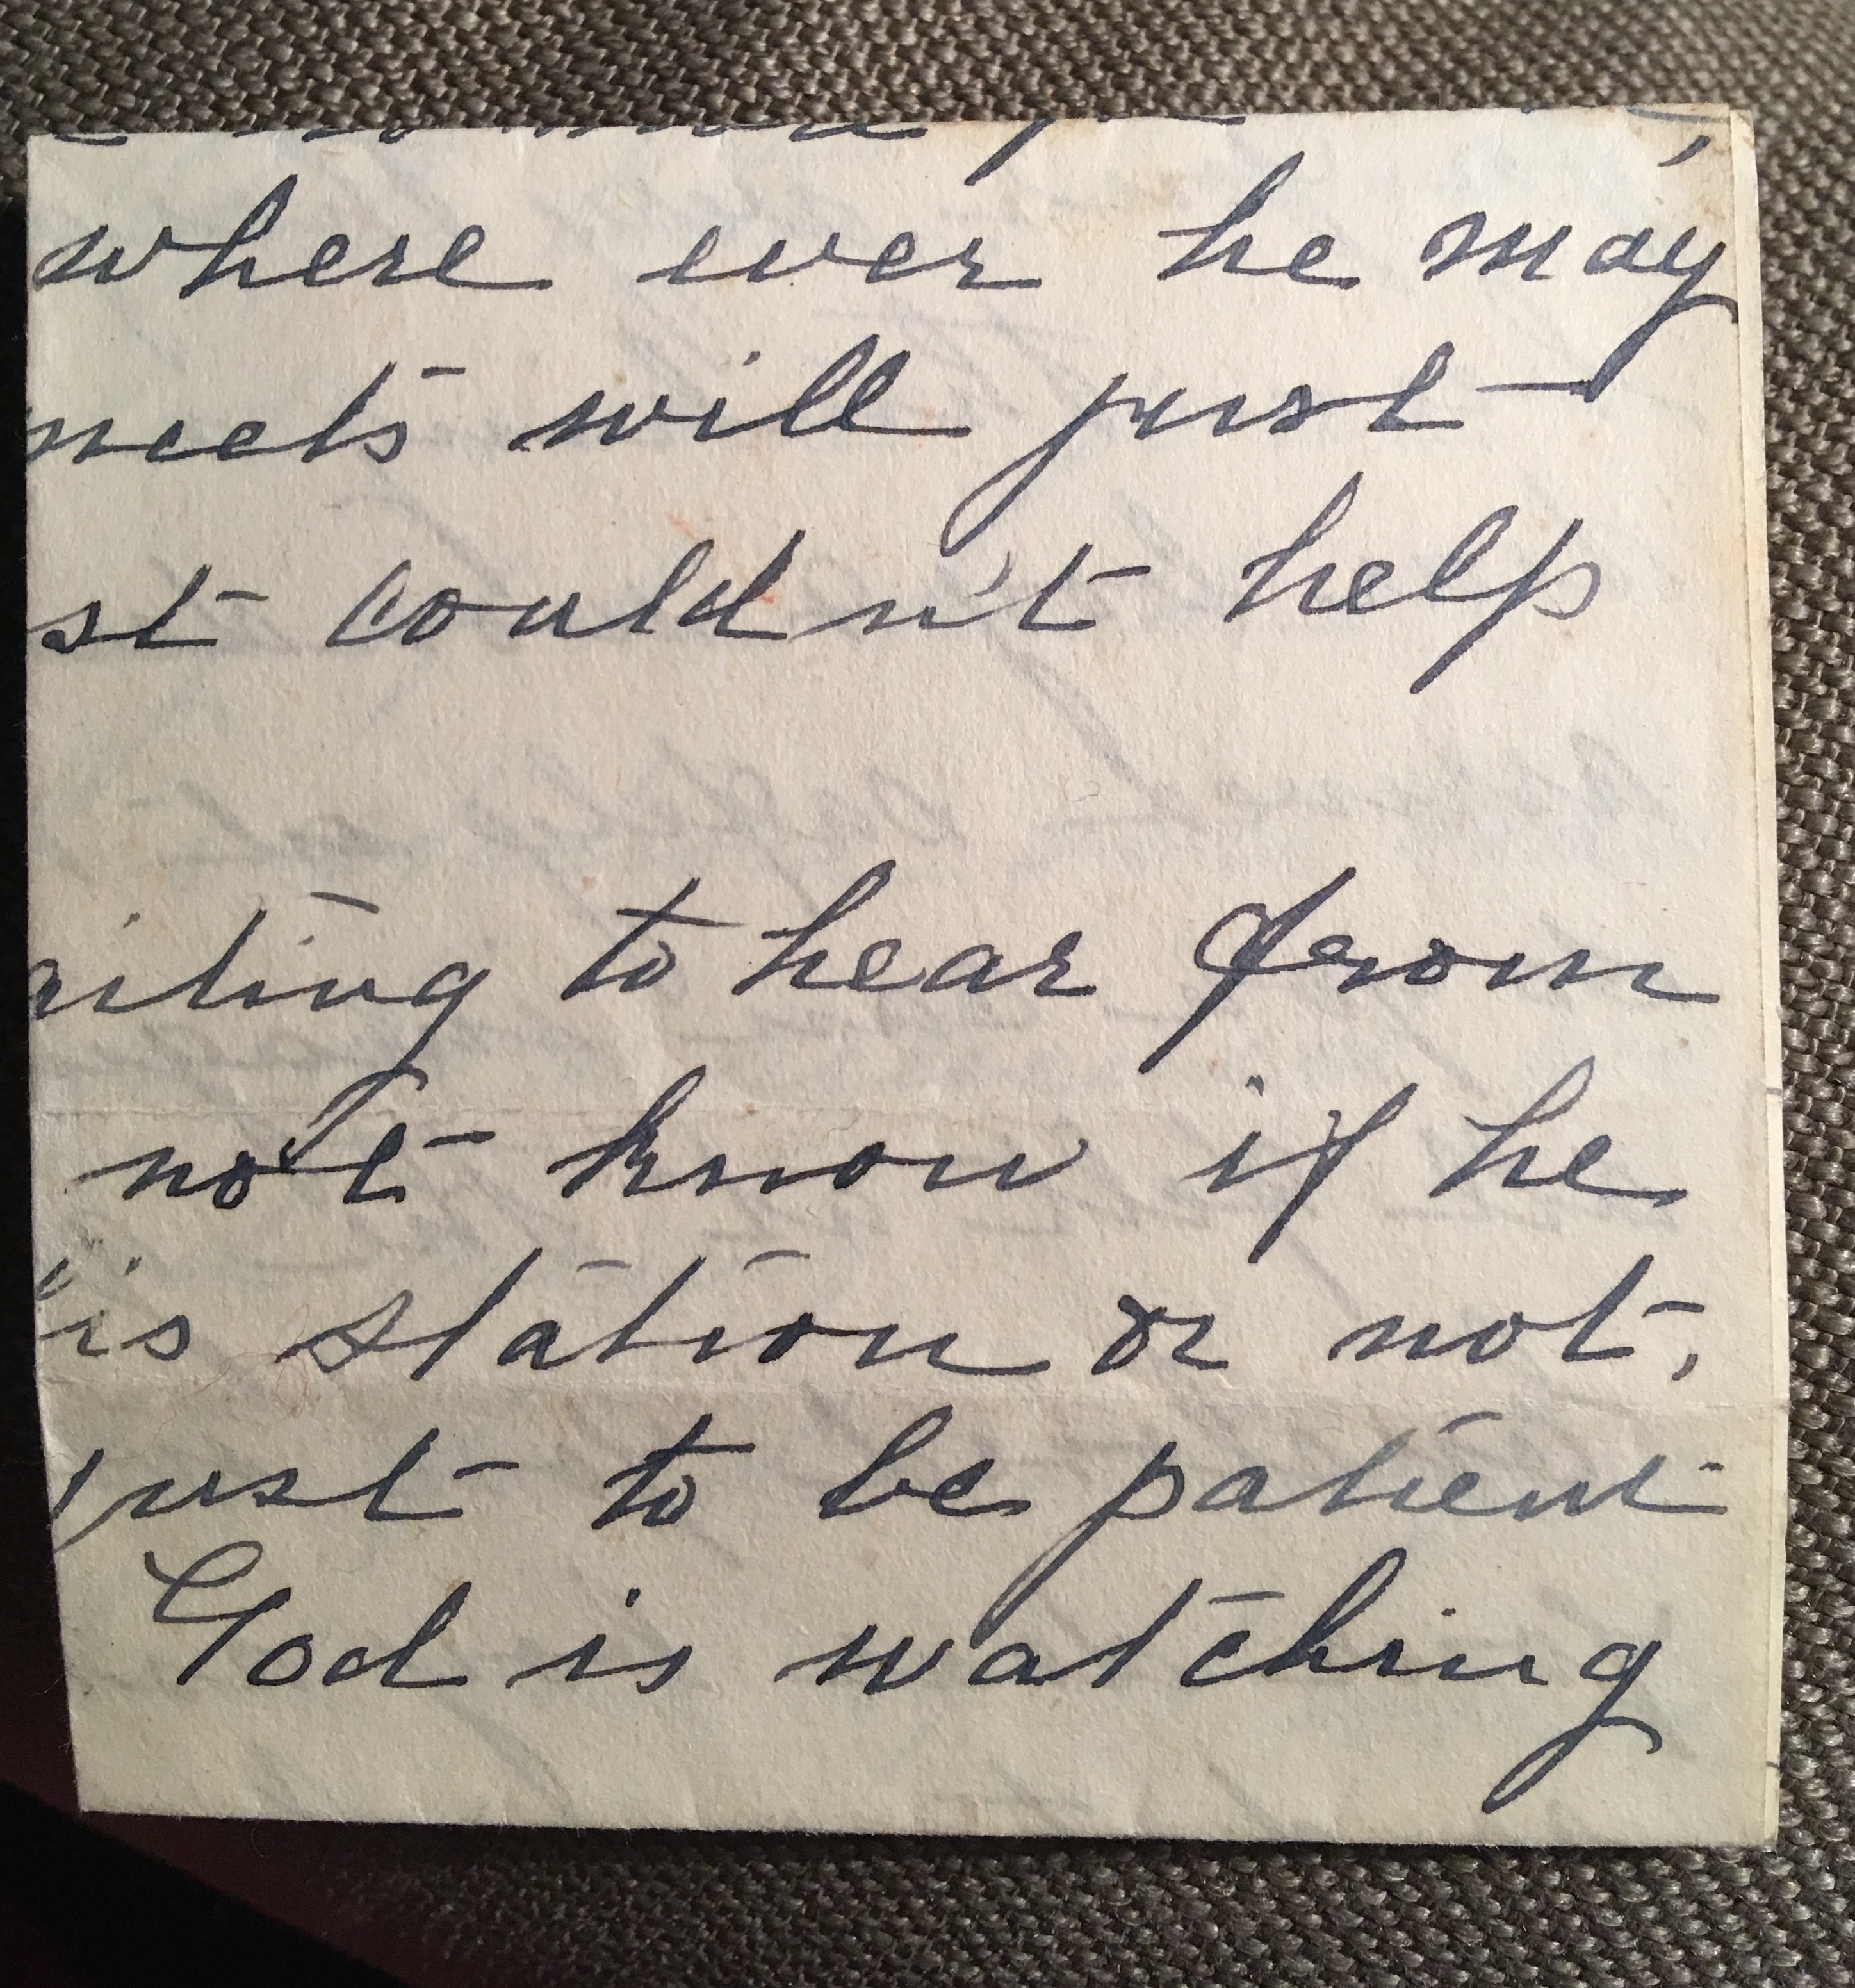 where ever he may
meets will just
st couldn't help
aiting to hear from
not know if he
is station or not,
just to be patient
God is watching